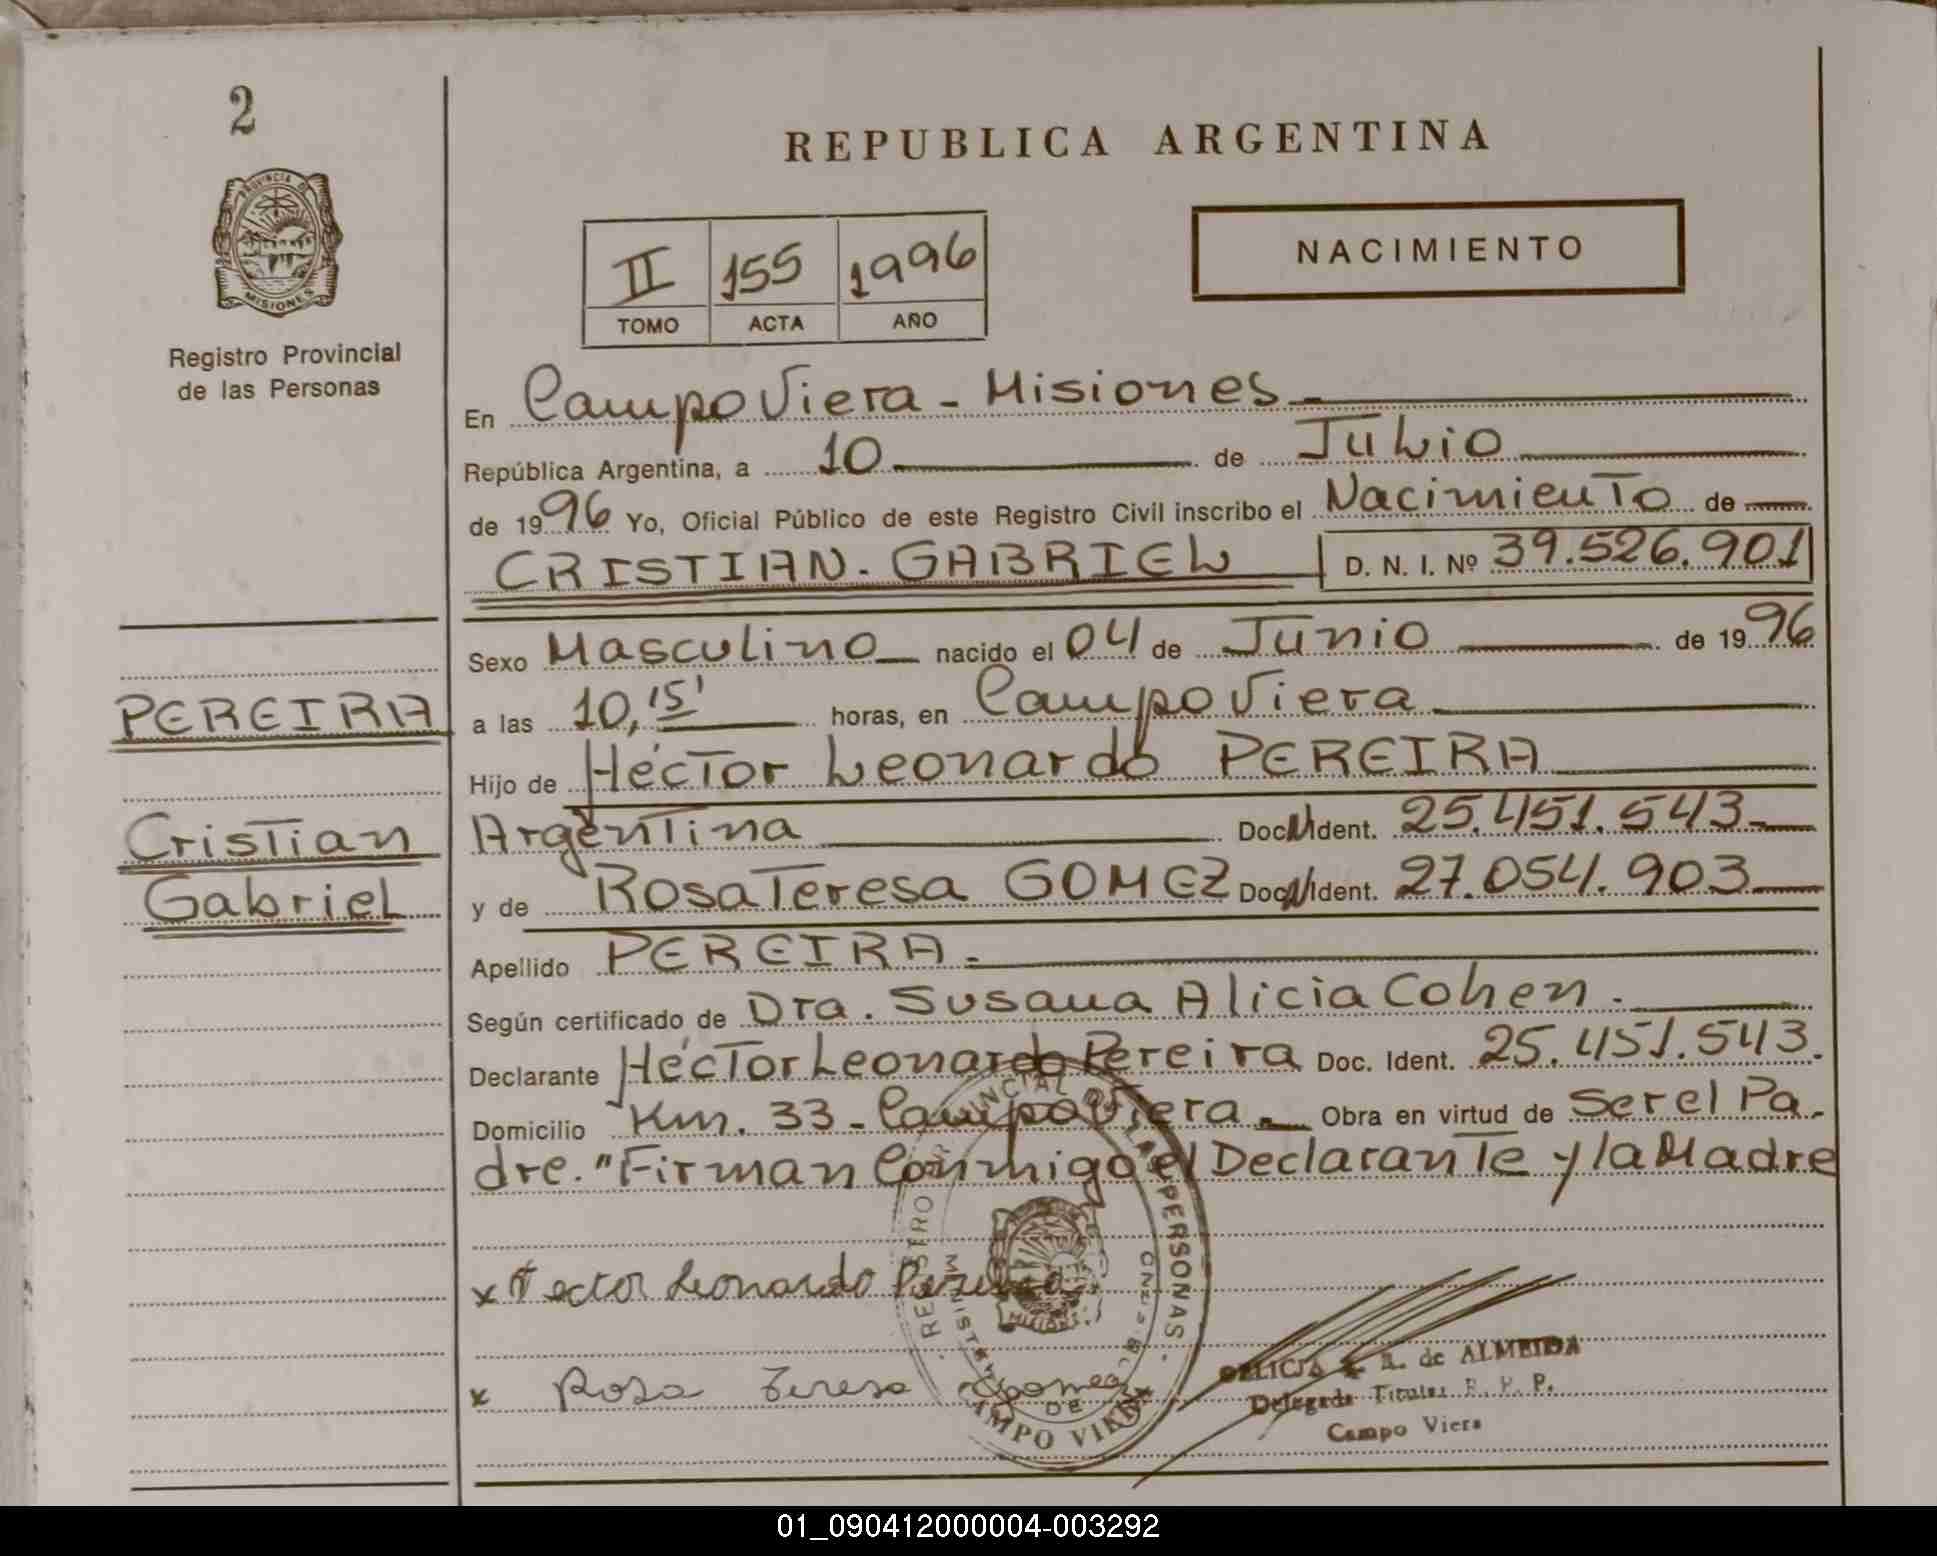 2
REPUBLICA ARGENTINA
PROVINCIA DE
MISIONES
Registro Provincial
de las Personas
II 155 1996
TOMO ACTA AÑO
NACIMIENTO
En Campo Viera - Misiones
República Argentina, a 10 de Julio
de 1996 Yo, Oficial Público de este Registro Civil inscribo el Nacimiento de
CRISTIAN. GABRIEL D. N. I. Nº 39.526.901
Sexo Masculino nacido el 04 de Junio de 1996
PEREIRA
a las 10,15' horas, en Campo Viera
Hijo de Héctor Leonardo PEREIRA
Cristian
Argentina Doc. N. Ident. 25.451.543
Gabriel
y de Rosa Teresa GOMEZ Doc. N. Ident. 27.054.903
Apellido PEREIRA.
Según certificado de Dra. Susana Alicia Cohen.
Declarante Héctor Leonardo Pereira Doc. Ident. 25.451.543.
Domicilio Km. 33 - Campo Viera Obra en virtud de Ser el Pa-
dre. "Firman Conmigo el Declarante y la Madre
x Hector Leonardo Pereira
x Rosa Teresa Gomez
REGISTRO PROVINCIAL DE LAS PERSONAS
MISIONES
CAMPO VIERA
R. de ALMEIDA
Delegada Titular R. P. P.
Campo Viera
01_090412000004-003292